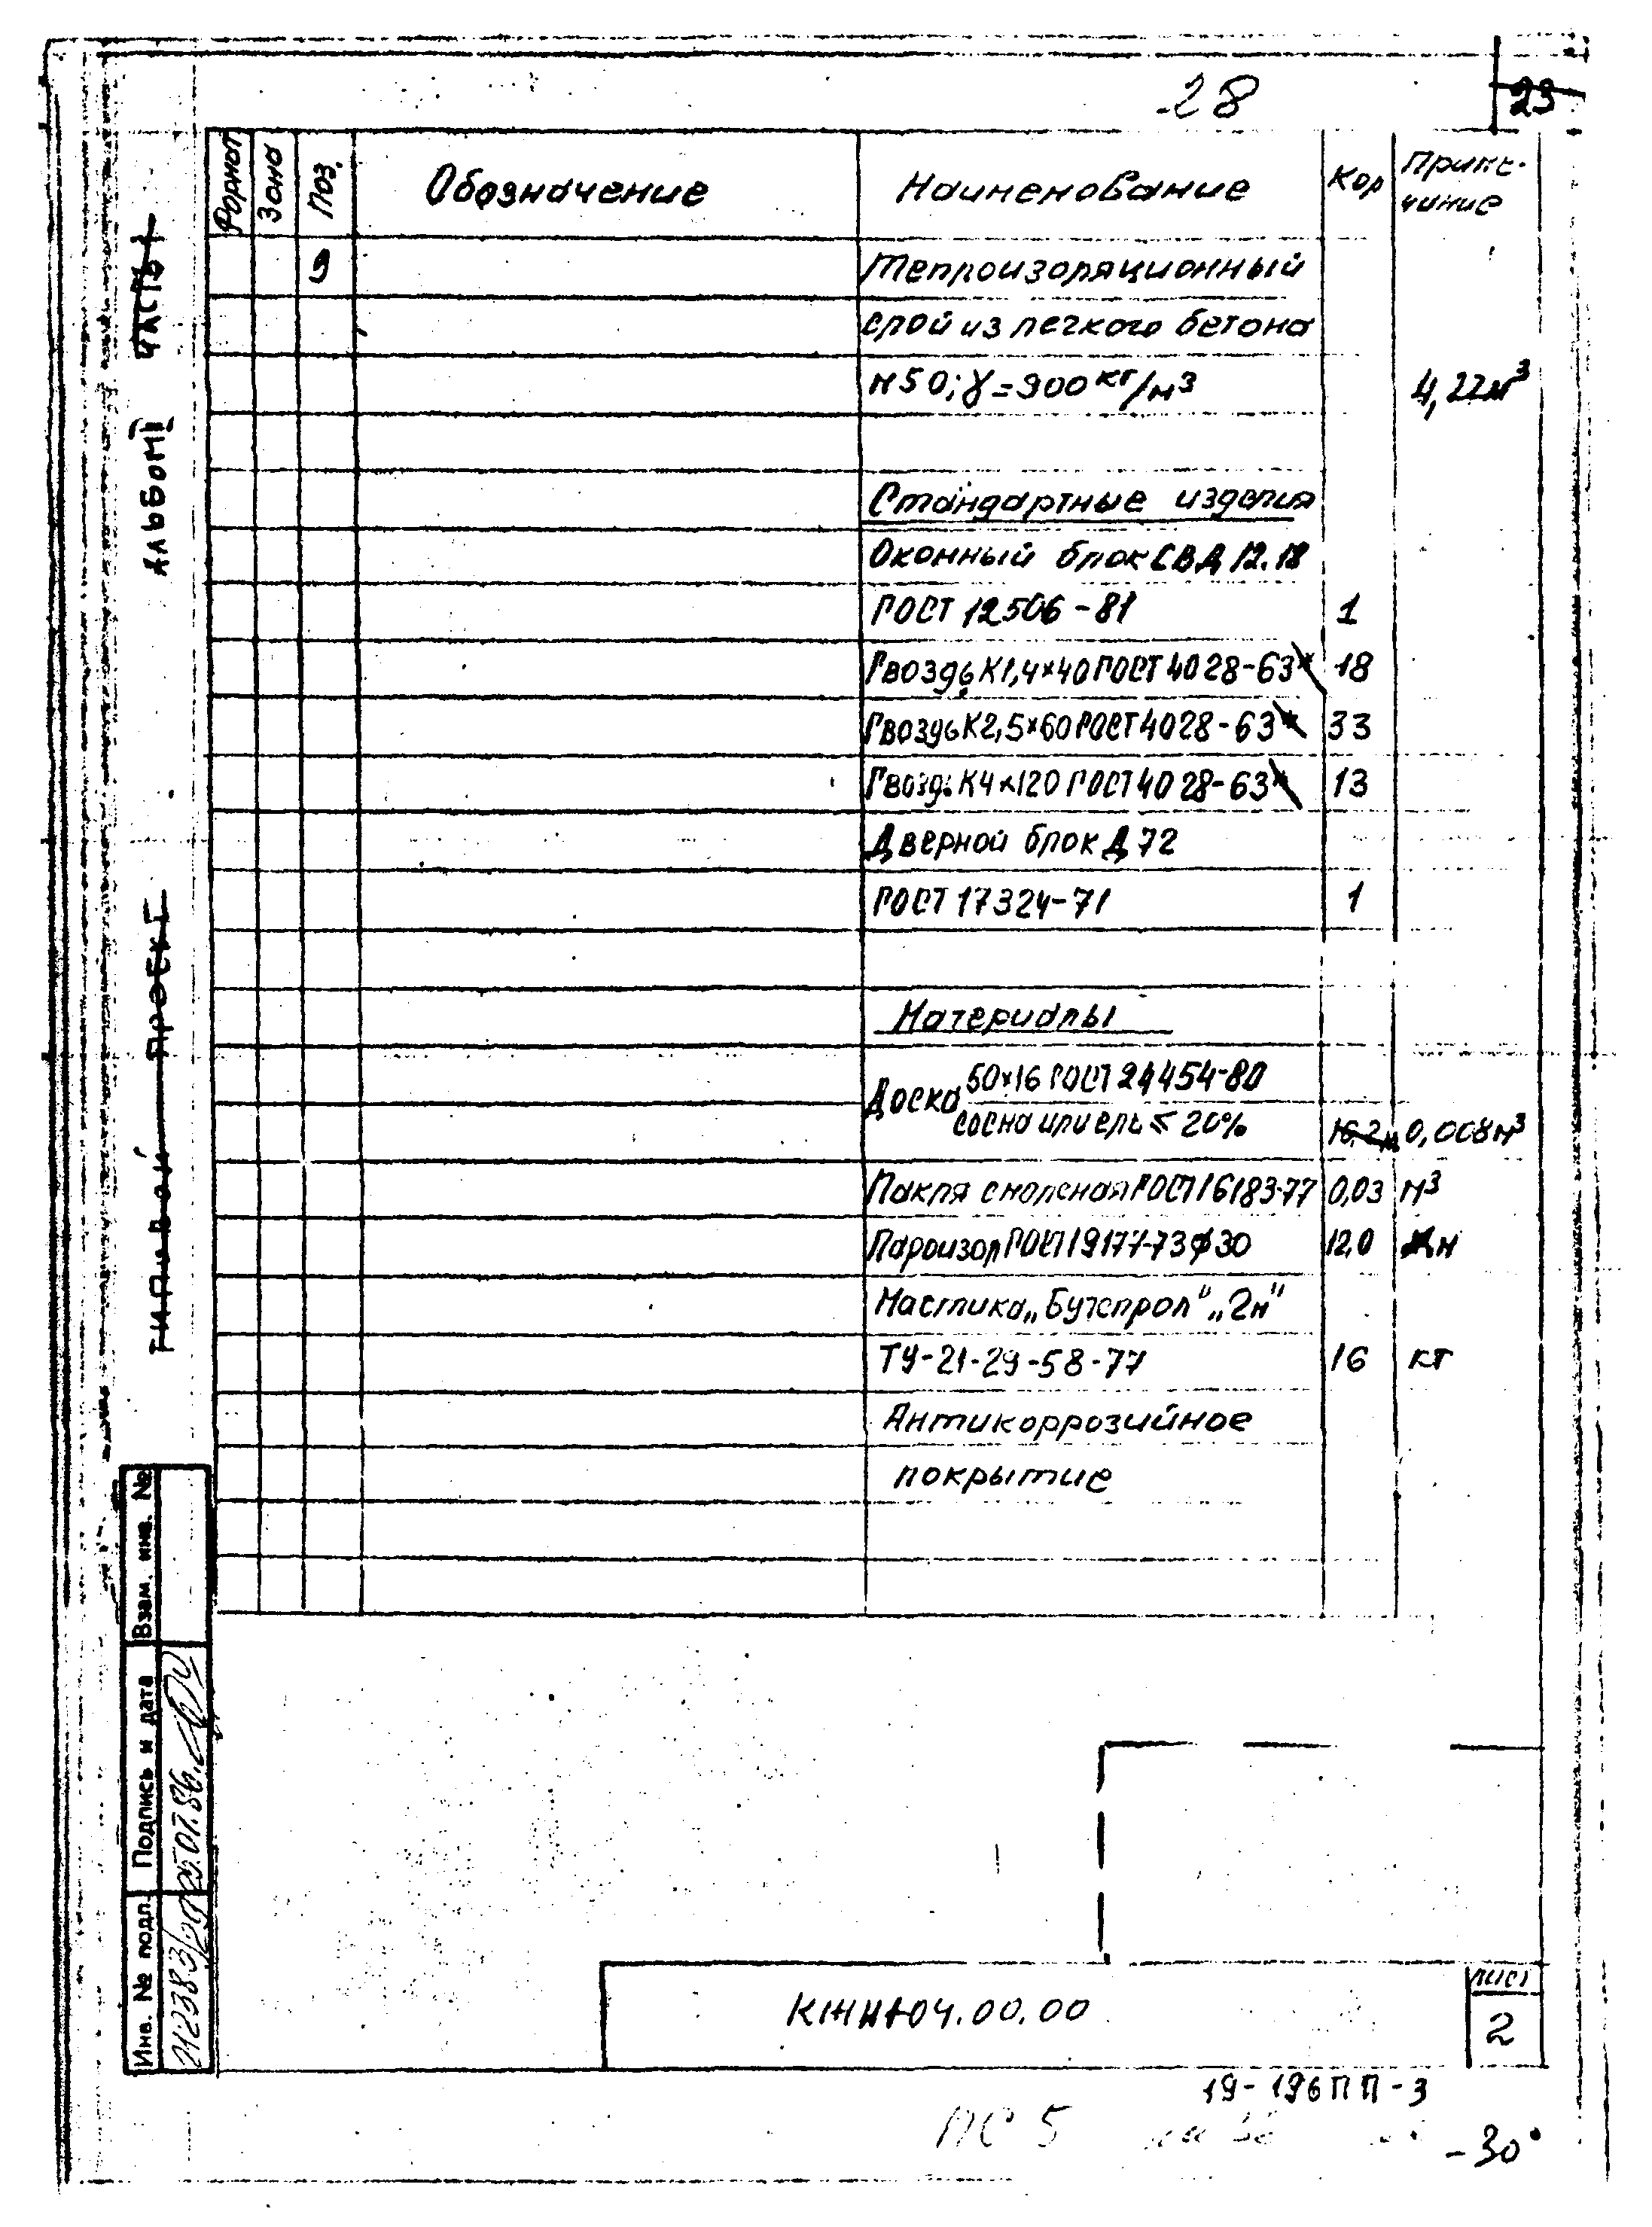 28
23
Формат Зона Поз. Обозначение Наименование Кол Приме-
чание
9 Теплоизоляционный
слой из легкого бетона
М50; γ=900 кг/м3 4,22м3
Стандартные изделия
Оконный блок СВД 12.18
ГОСТ 12506-81 1
Гвоздь К1,4×40 ГОСТ 4028-63* 18
Гвоздь К2,5×60 ГОСТ 4028-63* 33
Гвоздь К4×120 ГОСТ 4028-63* 13
Дверной блок Д 72
ГОСТ 17324-71 1
Материалы
Доска 50×16 ГОСТ 24454-80
сосна или ель ≤ 20% 16,2м 0,008м3
Пакля смоляная ГОСТ 16183-77 0,03 м3
Пароизол ГОСТ 19177-73 ф30 12,0 м
Мастика „Бутэпрол" „2м"
ТУ-21-29-58-77 16 кг
Антикоррозийное
покрытие
ТИПОВОЙ ПРОЕКТ АЛЬБОМ I ЧАСТЬ 1
Взам. инв. №
Подпись и дата
25.07.86.
Инв. № подл.
КЖИ-04.00.00
Лист
2
19-196ПП-3
ПС 5
-30°